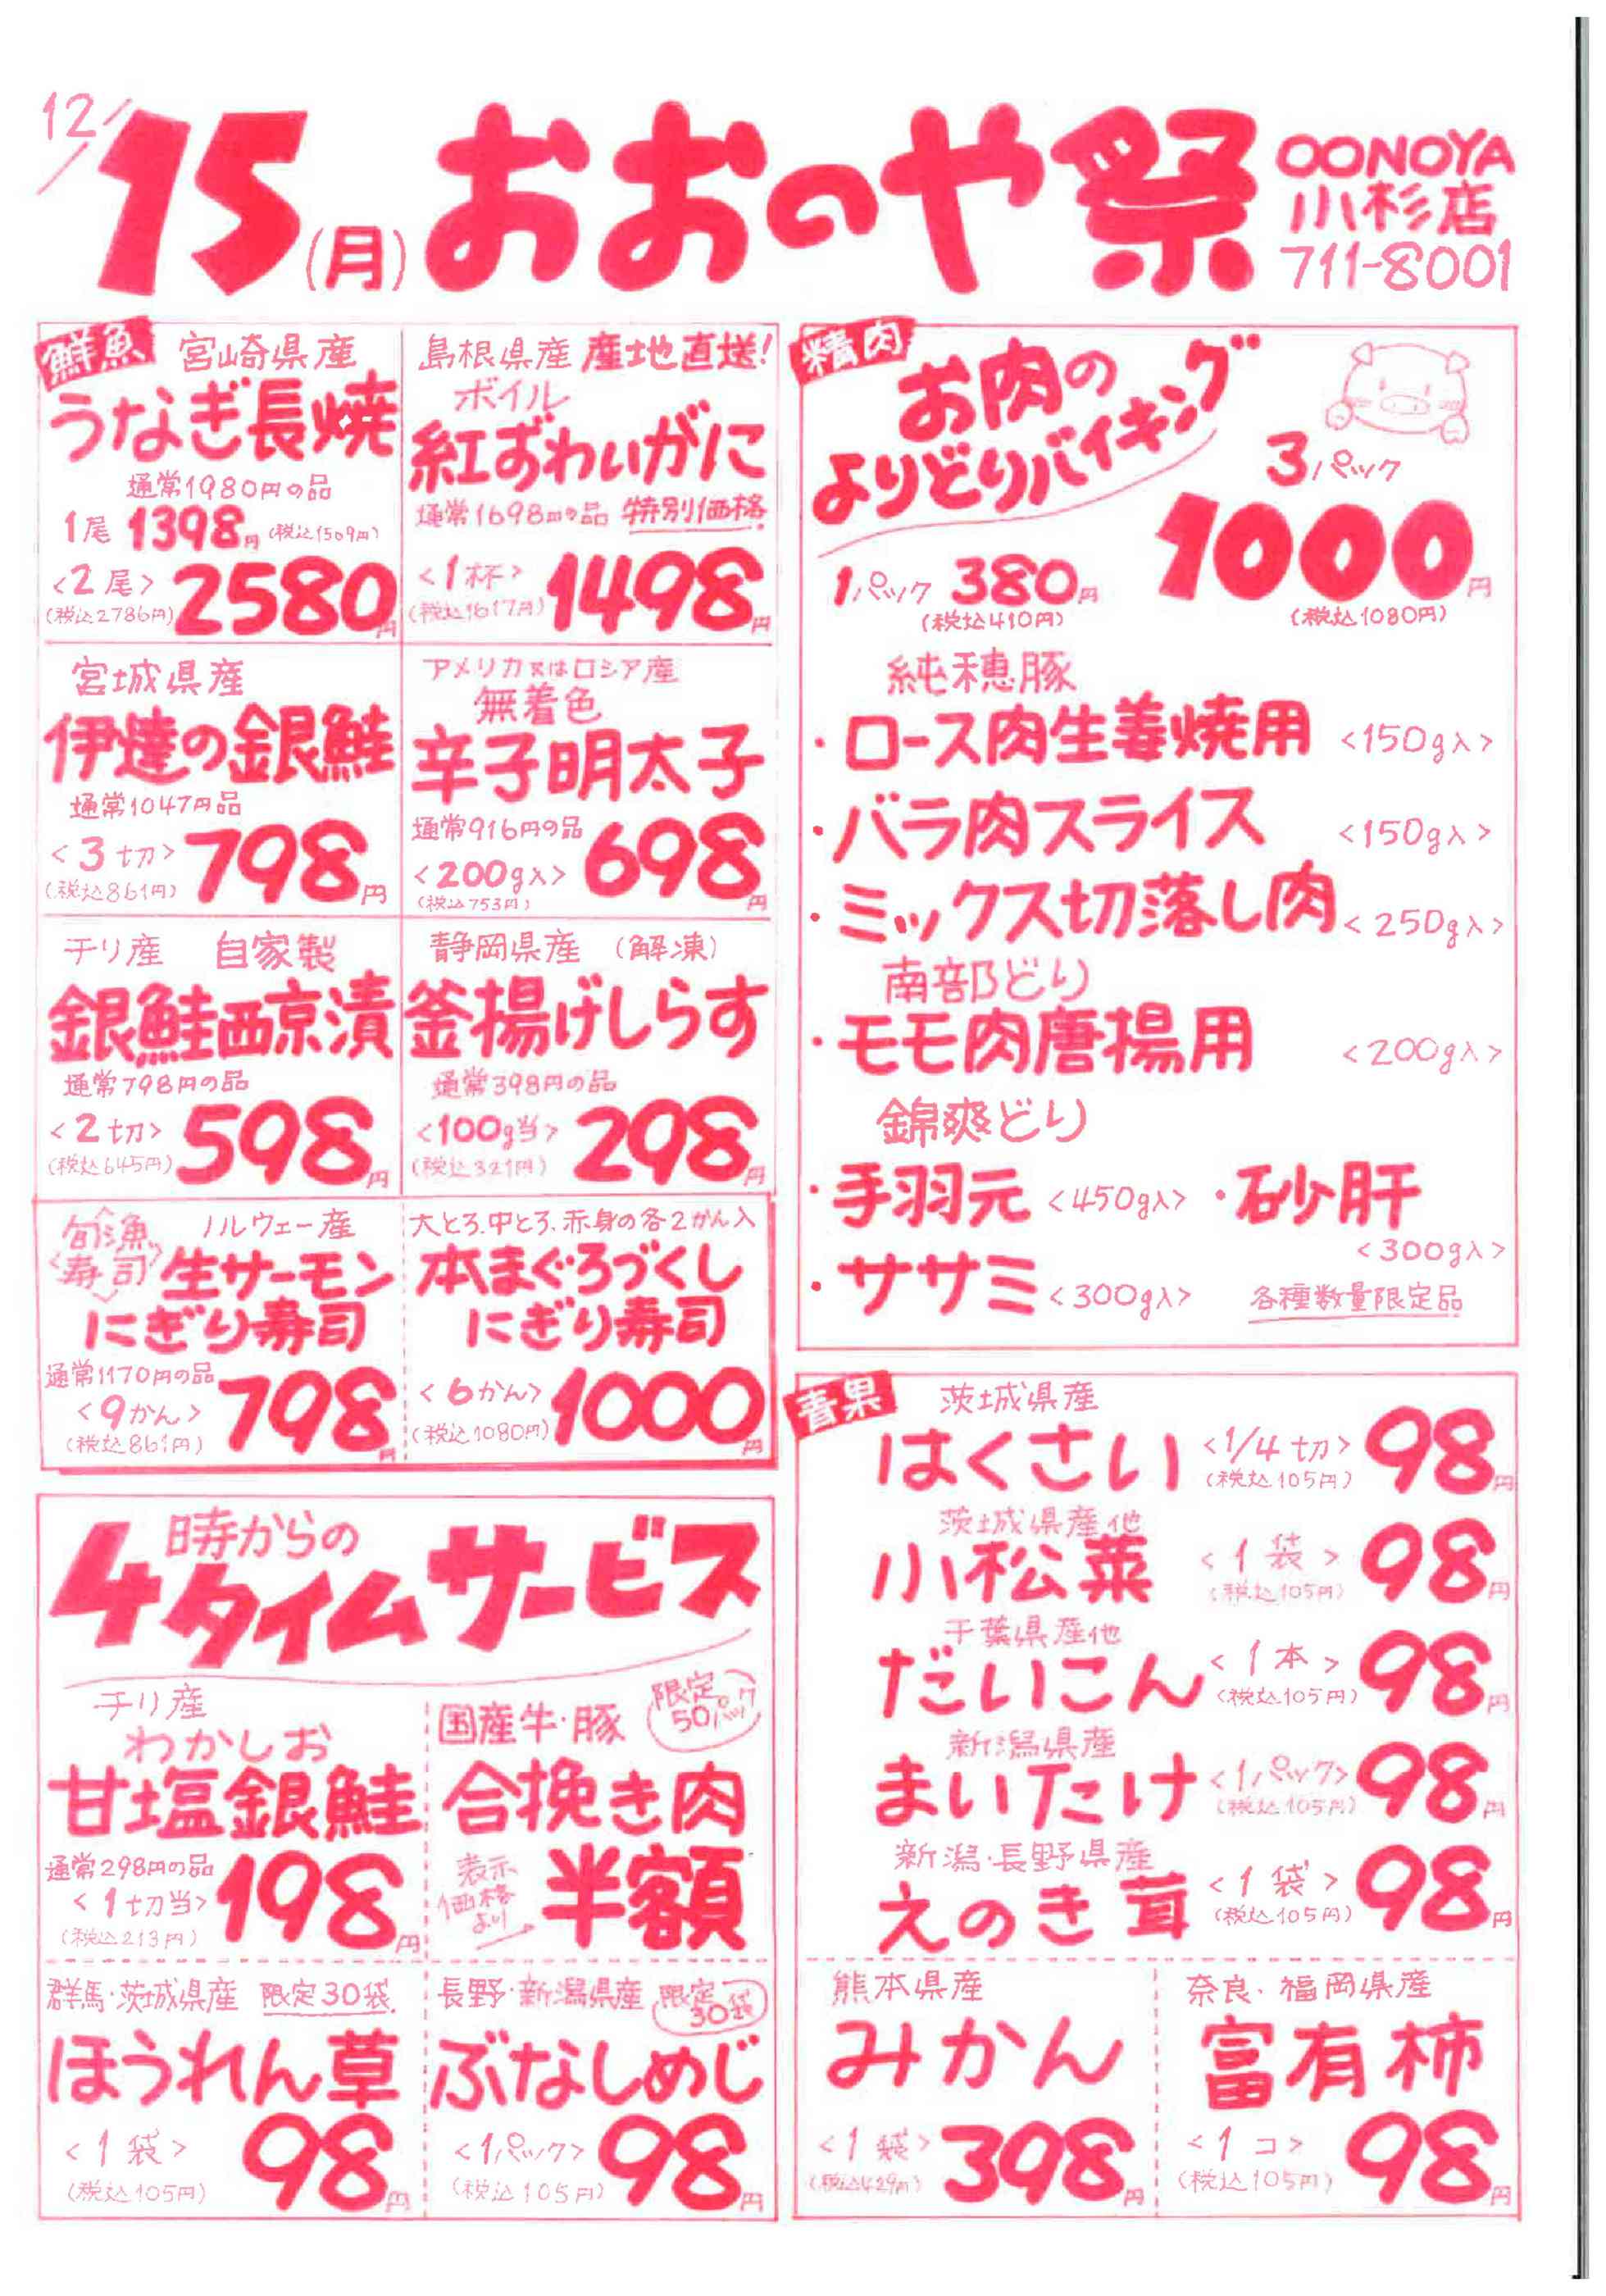 12/15(月)おおのや祭
OONOYA
小杉店
711-8001
鮮魚
宮崎県産
うなぎ長焼
通常1980円の品
1尾 1398円(税込1509円)
<2尾> 2580円
(税込2786円)
島根県産 産地直送!
ボイル
紅ずわいがに
通常1698円の品 特別価格
<1杯> 1498円
(税込1617円)
宮城県産
伊達の銀鮭
通常1047円品
<3切> 798円
(税込861円)
アメリカ又はロシア産
無着色
辛子明太子
通常916円の品
<200g入> 698円
(税込753円)
チリ産 自家製
銀鮭西京漬
通常798円の品
<2切> 598円
(税込645円)
静岡県産 (解凍)
釜揚げしらす
通常398円の品
<100g当> 298円
(税込321円)
旬漁
<寿司>
ノルウェー産
生サーモン
にぎり寿司
通常1170円の品
<9かん> 798円
(税込861円)
大とろ、中とろ、赤身の各2かん入
本まぐろづくし
にぎり寿司
<6かん> 1000円
(税込1080円)
4時からの
タイムサービス
チリ産
わかしお
甘塩銀鮭
通常298円の品
<1切当> 198円
(税込213円)
限定
50パック
国産牛・豚
合挽き肉
表示
価格
より
半額
群馬・茨城県産 限定30袋
ほうれん草
<1袋> 98円
(税込105円)
長野・新潟県産 限定
30袋
ぶなしめじ
<1パック> 98円
(税込105円)
精肉
お肉の
よりどりバイキング
3パック
1000円
(税込1080円)
1パック 380円
(税込410円)
純穂豚
・ロース肉生姜焼用 <150g入>
・バラ肉スライス <150g入>
・ミックス切落し肉 <250g入>
南部どり
・モモ肉唐揚用 <200g入>
錦爽どり
・手羽元 <450g入> ・砂肝
<300g入>
・ササミ <300g入> 各種数量限定品
青果
茨城県産
はくさい <1/4切> 98円
(税込105円)
茨城県産他
小松菜 <1袋> 98円
(税込105円)
千葉県産他
だいこん <1本> 98円
(税込105円)
新潟県産
まいたけ <1パック> 98円
(税込105円)
新潟・長野県産
えのき茸 <1袋> 98円
(税込105円)
熊本県産
みかん
<1袋> 398円
(税込429円)
奈良・福岡県産
富有柿
<1コ> 98円
(税込105円)